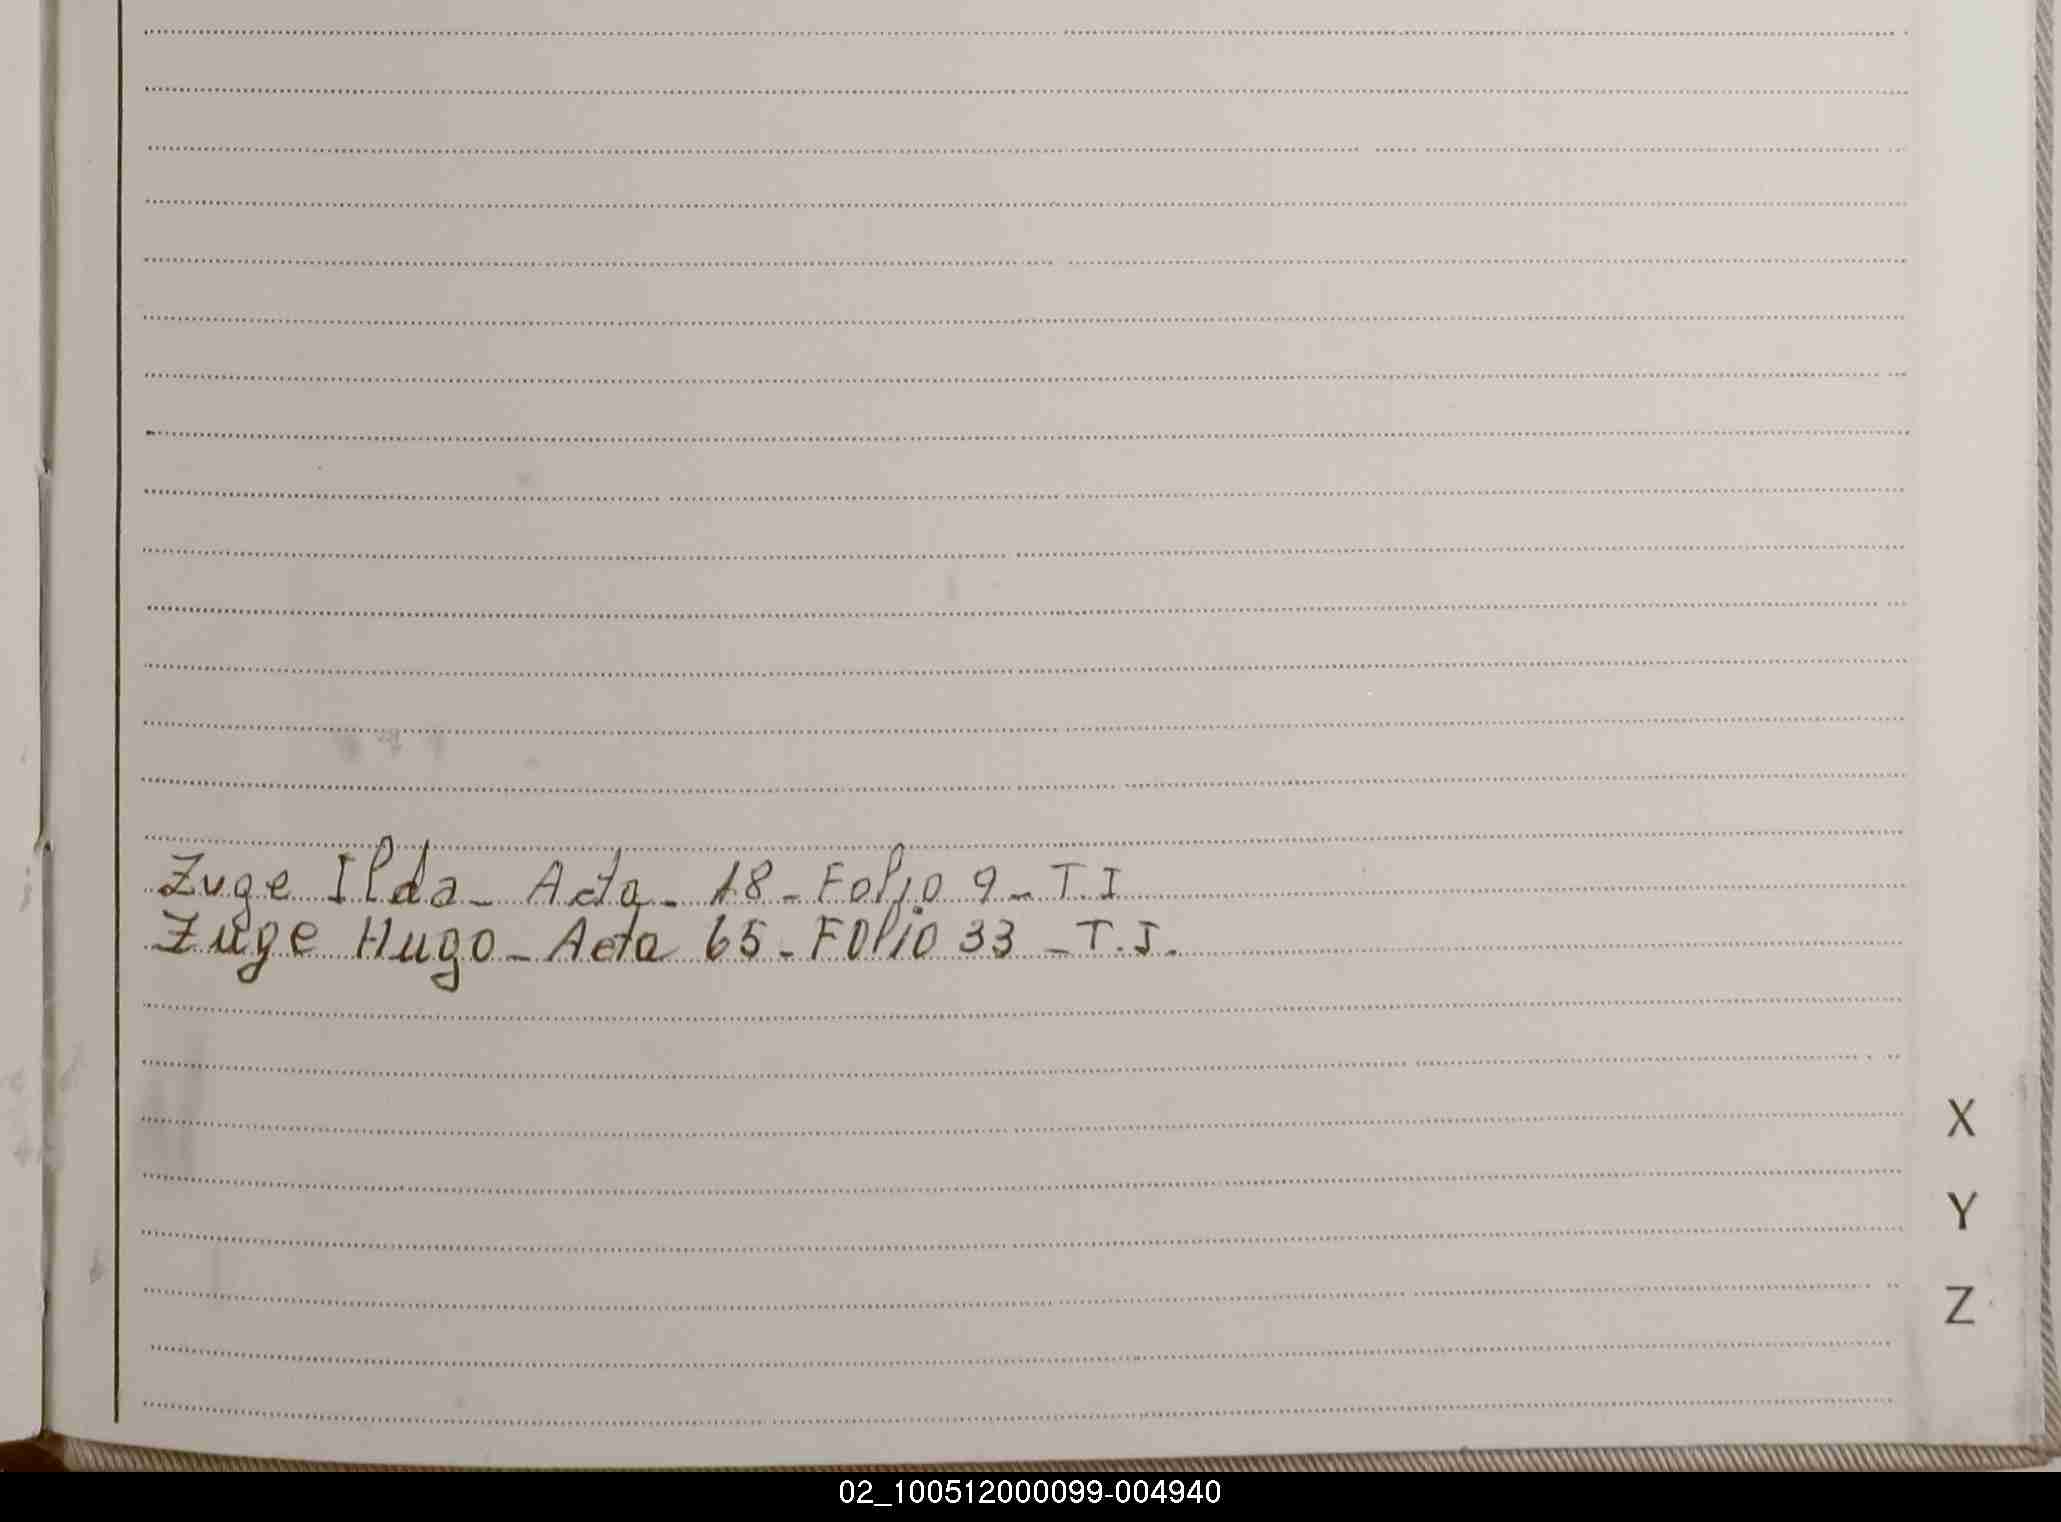 Zuge Ilda - Acta - 18 - Folio 9 - T. I
Zuge Hugo - Acta 65 - Folio 33 - T. I.
X
Y
Z
02_100512000099-004940